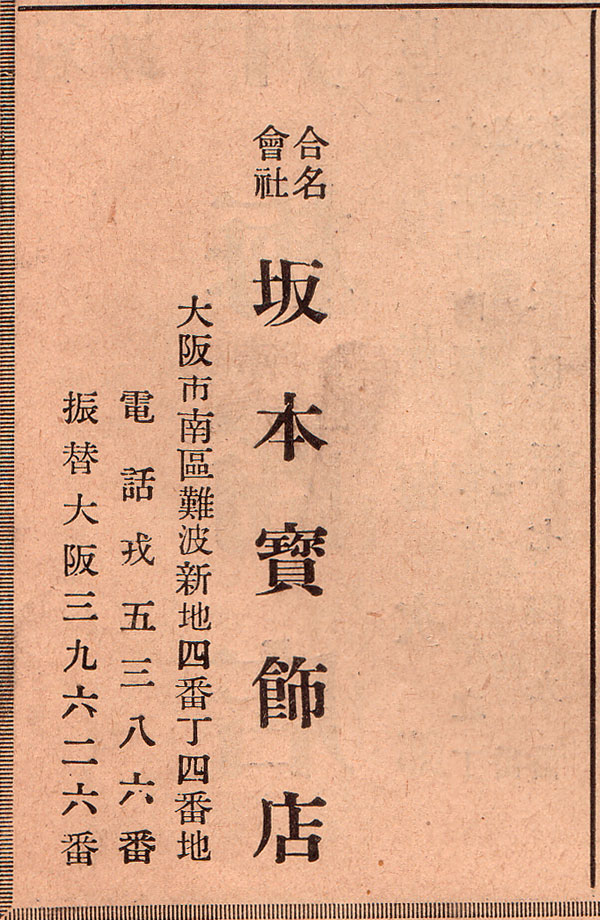 合名
會社
坂本寳飾店
大阪市南區難波新地四番丁四番地
電話戎五三八六番
振替大阪三九六二六番